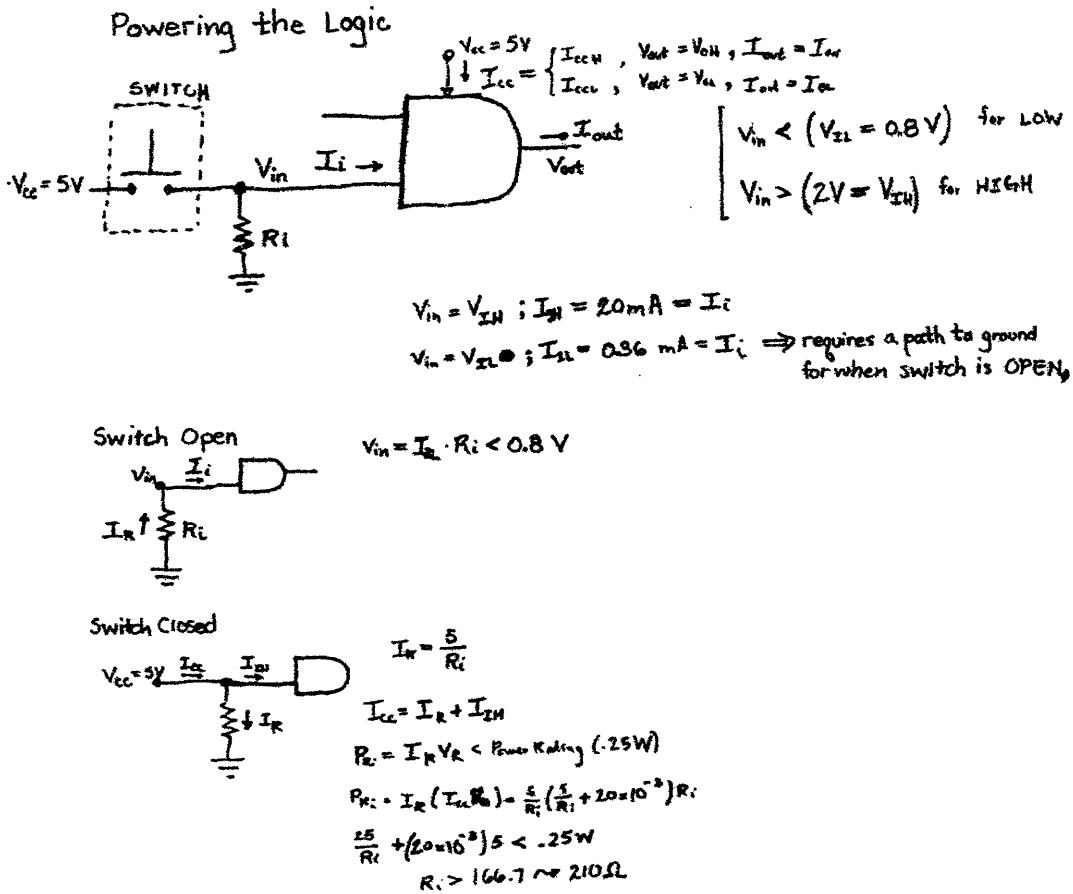 Powering the Logic
SWITCH
Vcc = 5V
Vin
Ii →
Ri
Vcc = 5V
↓ Icc = { ICCH, Vout = VOH, Iout = IOH
ICCL, Vout = VOL, Iout = IOL
Iout
Vout
Vin < (VIL = 0.8 V) for LOW
Vin > (2V = VIH) for HIGH
Vin = VIH ; IIH = 20mA = Ii
Vin = VIL ; IIL = 0.36 mA = Ii ⇒ requires a path to ground
for when switch is OPEN,
Switch Open
Vin = IR · Ri < 0.8 V
Vin
Ii
IR ↑
Ri
Switch Closed
Vcc = 5V
Icc
IIH
↓ IR
IR = 5/Ri
Icc = IR + IIH
PRi = IR VR < Power Rating (.25W)
PRi = IR (Icc Ri) = 5/Ri (5/Ri + 20×10^-3) Ri
25/Ri + (20×10^-3) 5 < .25W
Ri > 166.7 ~ 210Ω